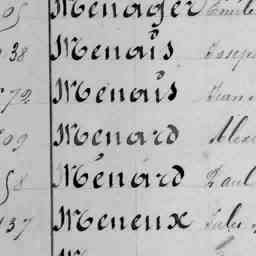 Menager Emile
38 Menais Joseph
79 Menais Jean
09 Menard Alex
58 Ménard Paul
137 Meneux Jules